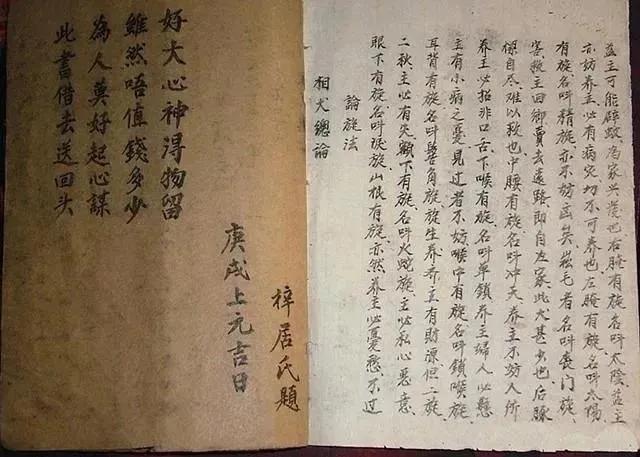 此書借去送回头
為人莫好起心謀
雖然唔值錢多少
好大心神得物留
庚戌上元吉日
梓居氏題
相犬總論
論旋法
眼下有旋名叫淚旋山根有旋亦然养主必憂愁不过
二秋主必有失額下有旋名叫火蛇旋主必私心惡意
耳背有旋名叫鬓角旋旋生养养主有財源但二旋
主有小病之憂見过者不妨喉中有旋名叫鎖喉旋
养主必招非口舌下喉有旋名叫单鎖养主婦人必懸
樑自尽难以救也中腰有旋名叫冲天养主不妨人所
害救主回卿賣去遠路即自左家此犬甚少也后腺
有旋名叫精旋亦不妨凶矣崧毛者名叫喪门旋
亦妨养主必有病灾切不可养也左腌有旋名叫太陽
益主可能辟蚊為家兴發也右腌有旋名叫太陰益主